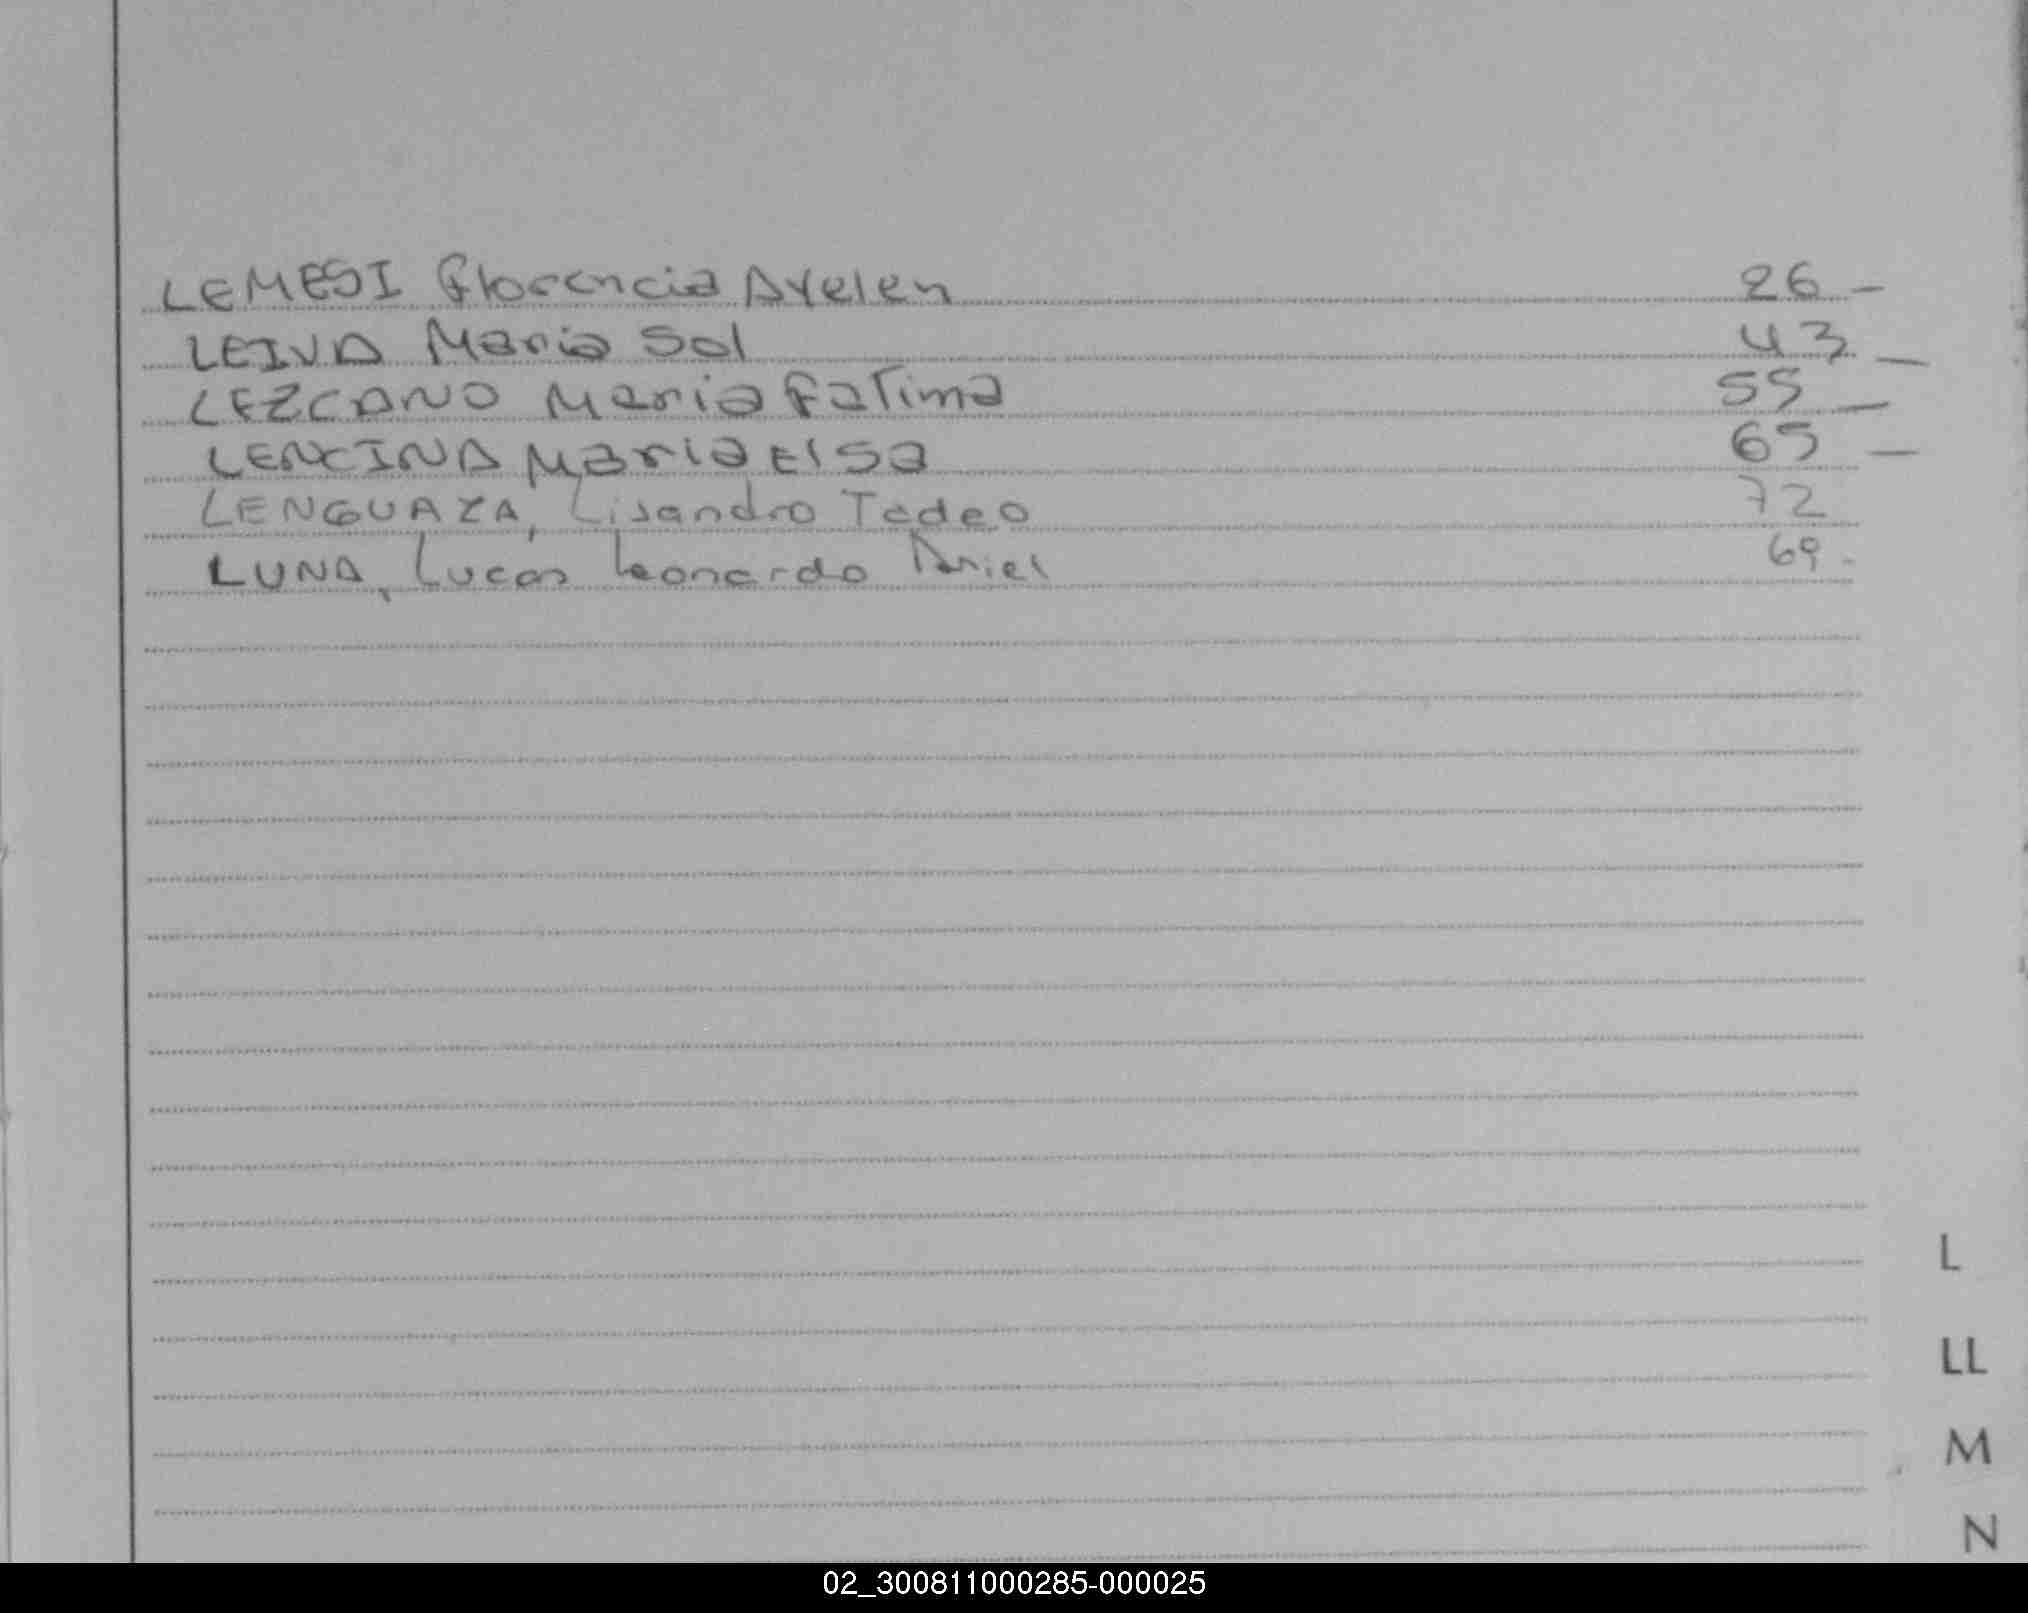 LEMESI Florencia Ayelen 26 -
LEIVA Maria Sol 43 -
LEZCANO Maria Fatima 55 -
LENCINA Maria Elsa 65 -
LENGUAZA, Lisandro Tadeo 72
LUNA, Lucas Leonardo Ariel 69.
L
LL
M
N
02_300811000285-000025